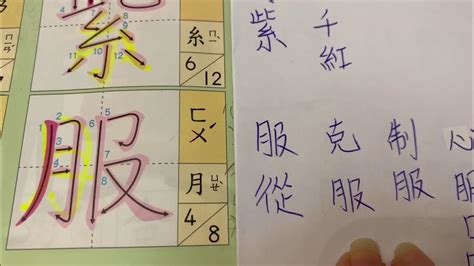 紫
糸
ㄇㄧˋ
6
12
服
ㄈㄨˊ
月
ㄩㄝˋ
4
8
紫
千紅
服從
克服
制服
心服口